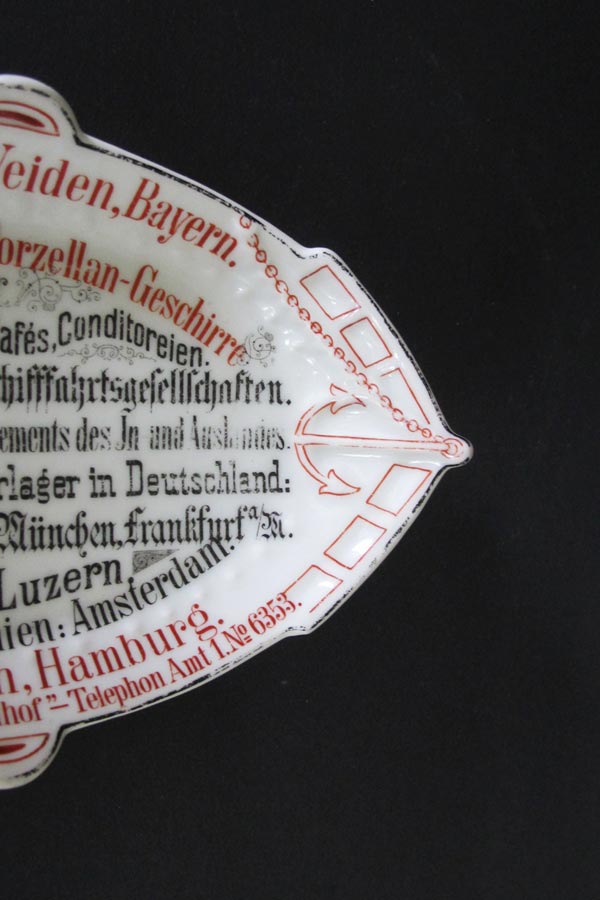 Weiden, Bayern.
Porzellan-Geschirre
afés, Conditoreien.
chifffahrtsgesellschaften.
ements des In- und Auslandes.
rlager in Deutschland:
München, Frankfurt a/M.
Luzern,
ien: Amsterdam.
n, Hamburg.
hof"– Telephon Amt 1. No 6353.